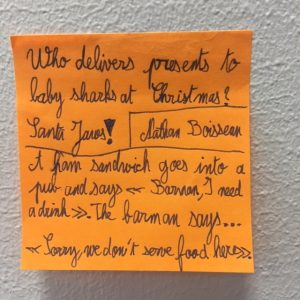 Who delivers presents to
baby sharks at Christmas?
Santa Jaws!
Nathan Boissean
A ham sandwich goes into a
pub and says « Barman, I need
a drink ». The barman says...
« Sorry, we don't serve food here ».